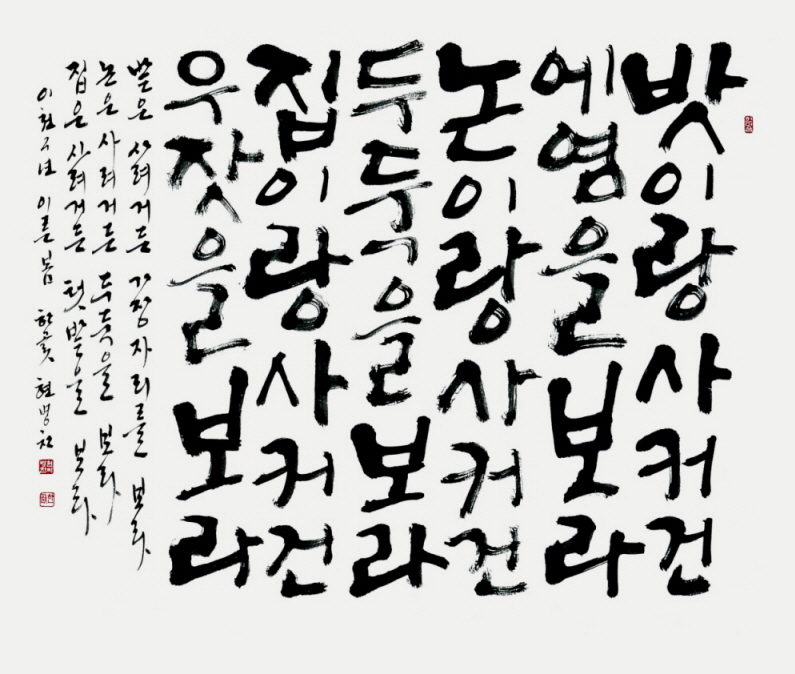 밧이랑사커건
에염을보라
논이랑사커건
두둑을보라
집이랑사커건
우잣을보라
밭은 사려거든 가장자리를 보라
논은 사려거든 두둑을 보라
집은 사려거든 텃밭을 보라
이천구년 이른 봄 한곬 현병찬